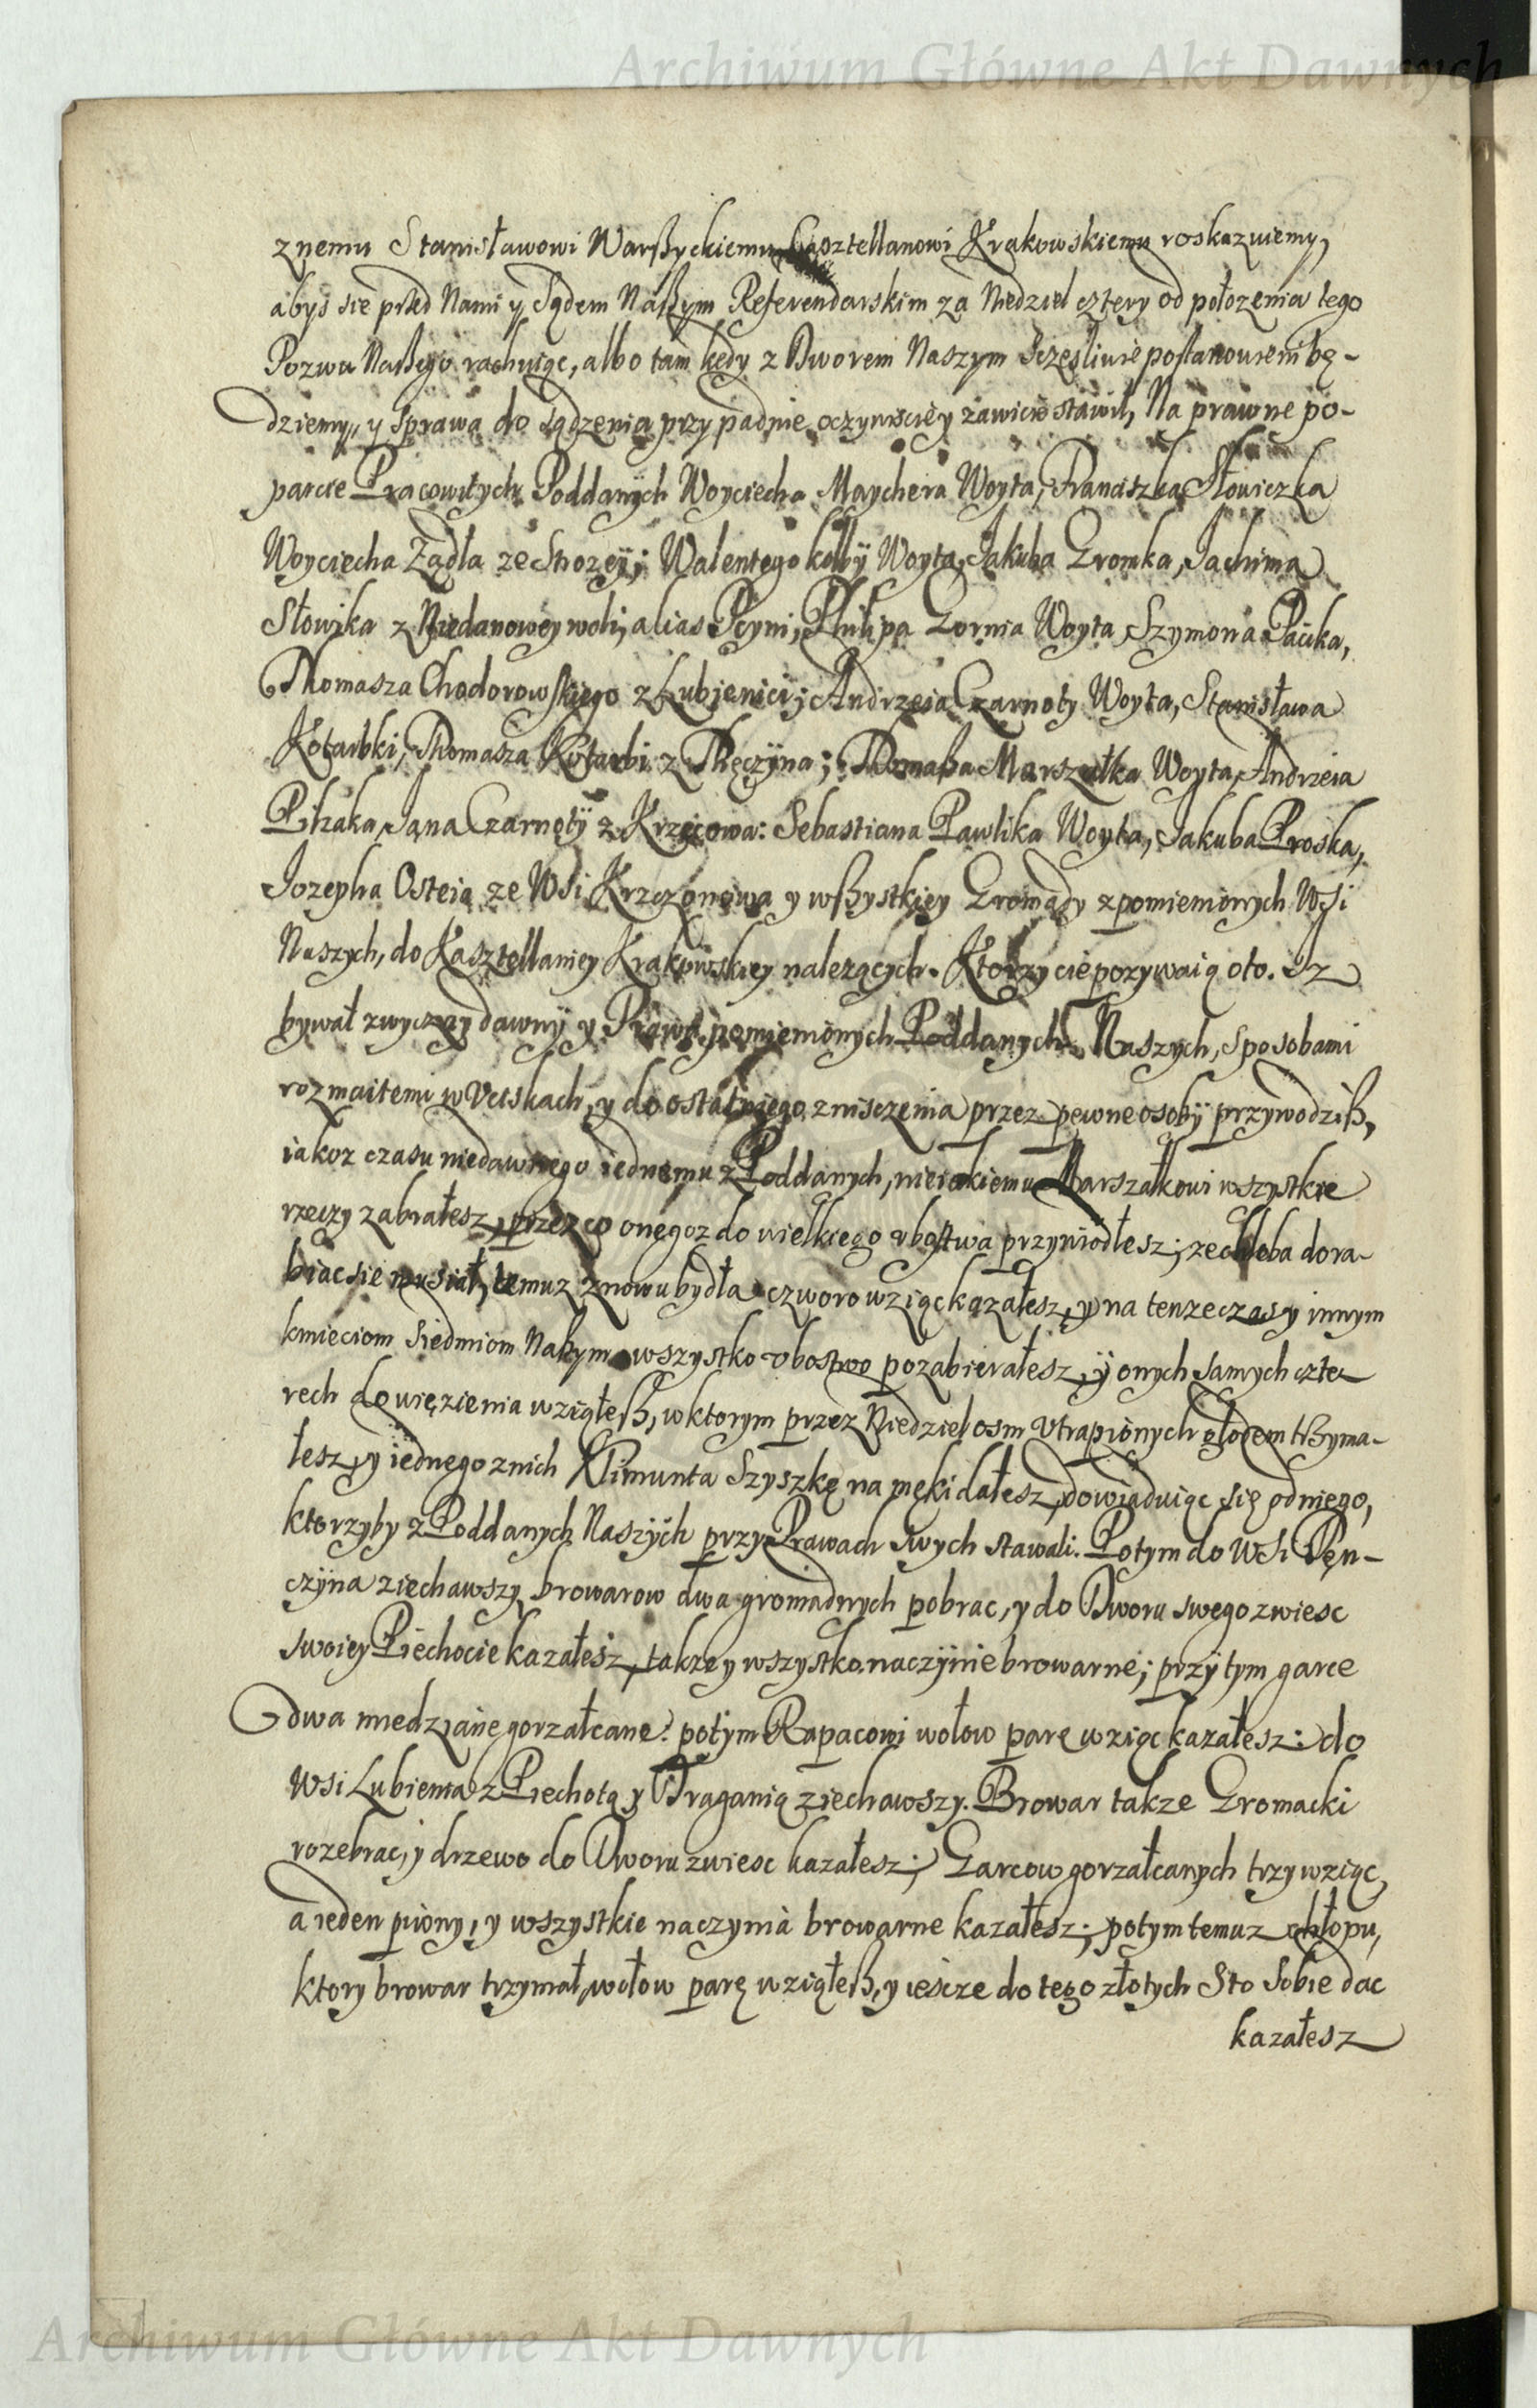 Archiwum Główne Akt Dawnych
znemu Stanisławowi Warßyckiemu Casztellanowi Krakowskiemu roskazuiemy,
abyś sie przed Nami y Sądem Naßym Referendarskim za Niedziel cztery od położenia tego
Pozwu Naßego rachuiąc, albo tam kędy z Dworem Naszym Sczęsliwie postanowieni bę-
dziemy, y sprawa do sądzenia przypadnie oczywiscie y zawicie stawił, Na prawne po-
parcie Pracowitych Poddanych Woyciecha Maychera Woyta, Franciszka Słowiczka
Woyciecha Żądła ze Strozey; Walentego kołby Woyta, Jakuba Gromka, Jachima
Słowika z Niedanowey woli, alias Pcyni, Philipa Gornia Woyta, Szymona Pacika,
Thomasza Chodorowskiego z Lubienici; Andrzeia Czarnoty Woyta, Stanisława
Kotarbki, Thomasza Kotarbi z Thęczÿna; Thomaßa Marszałka Woyta, Andrzeia
Jana Czarnotÿ z Krzęcowa: Sebastiana Pawlika Woyta, Jakuba Proska,
Jozepha Osteia ze Wsi Krzczonowa y wßystkiey Gromady zpomienionych Wsi
Naszych, do Kasztellaniey Krakowskiey nalezących. Ktorzy cie pozywaią oto. Iz
bywał zwyczay dawnÿ y Prawa pomienionych Poddanych Naszych, sposobami
rozmaitemi w Vciskach, y do ostatniego zniszczenia przez pewne osobÿ przywodziß,
iakoz czasu niedawnego iednemu z Poddanych, nieiakiemu Marszałkowi wszystkie
rzeczy zabrałesz, przez co onegoz do wielkiego vbostwa przywiodłesz; ze chleba dora-
biac sie musiał, temuz znowu bydła czworo wziąc kazałesz, y na tenze czas y innym
kmieciom siedmiom Naßym wszystko vbostwo pozabierałesz, ÿ onych samych czte-
rech do więzienia wziąłeß, w ktorym przez Niedziel osm vtrapionych głodem trzyma-
łesz, y iednego znich Klimunta Szyszkę na męki dałesz, dowiaduiąc się od niego,
ktorzyby z Poddanych Naszÿch przy Prawach swych stawali. Potym do Wsi Tęn-
czÿna ziechawszy, browarow dwa gromadnych pobrac, y do Dworu swego zwiesc
swoiey Piechocie kazałesz, takze y wszystko naczÿnie browarne; przÿ tym garce
dwa miedziane gorzałcane: potÿm Rapacowi wołow parę wziąc kazałesz: do
Wsi Lubienia z Piechotą y Draganią ziechawszy. Browar takze Gromacki
rozebrac, y drzewo do Dworu zwiesc kazałesz; Garcow gorzałcanych trzy wziąc,
a ieden piwny, y wszystkie naczynia browarne kazałesz; potym temuz chłopu,
ktory browar trzymał, wołow parę wziąłeß, y iescze do tego złotych Sto Sobie dac
kazałesz
Archiwum Główne Akt Dawnych